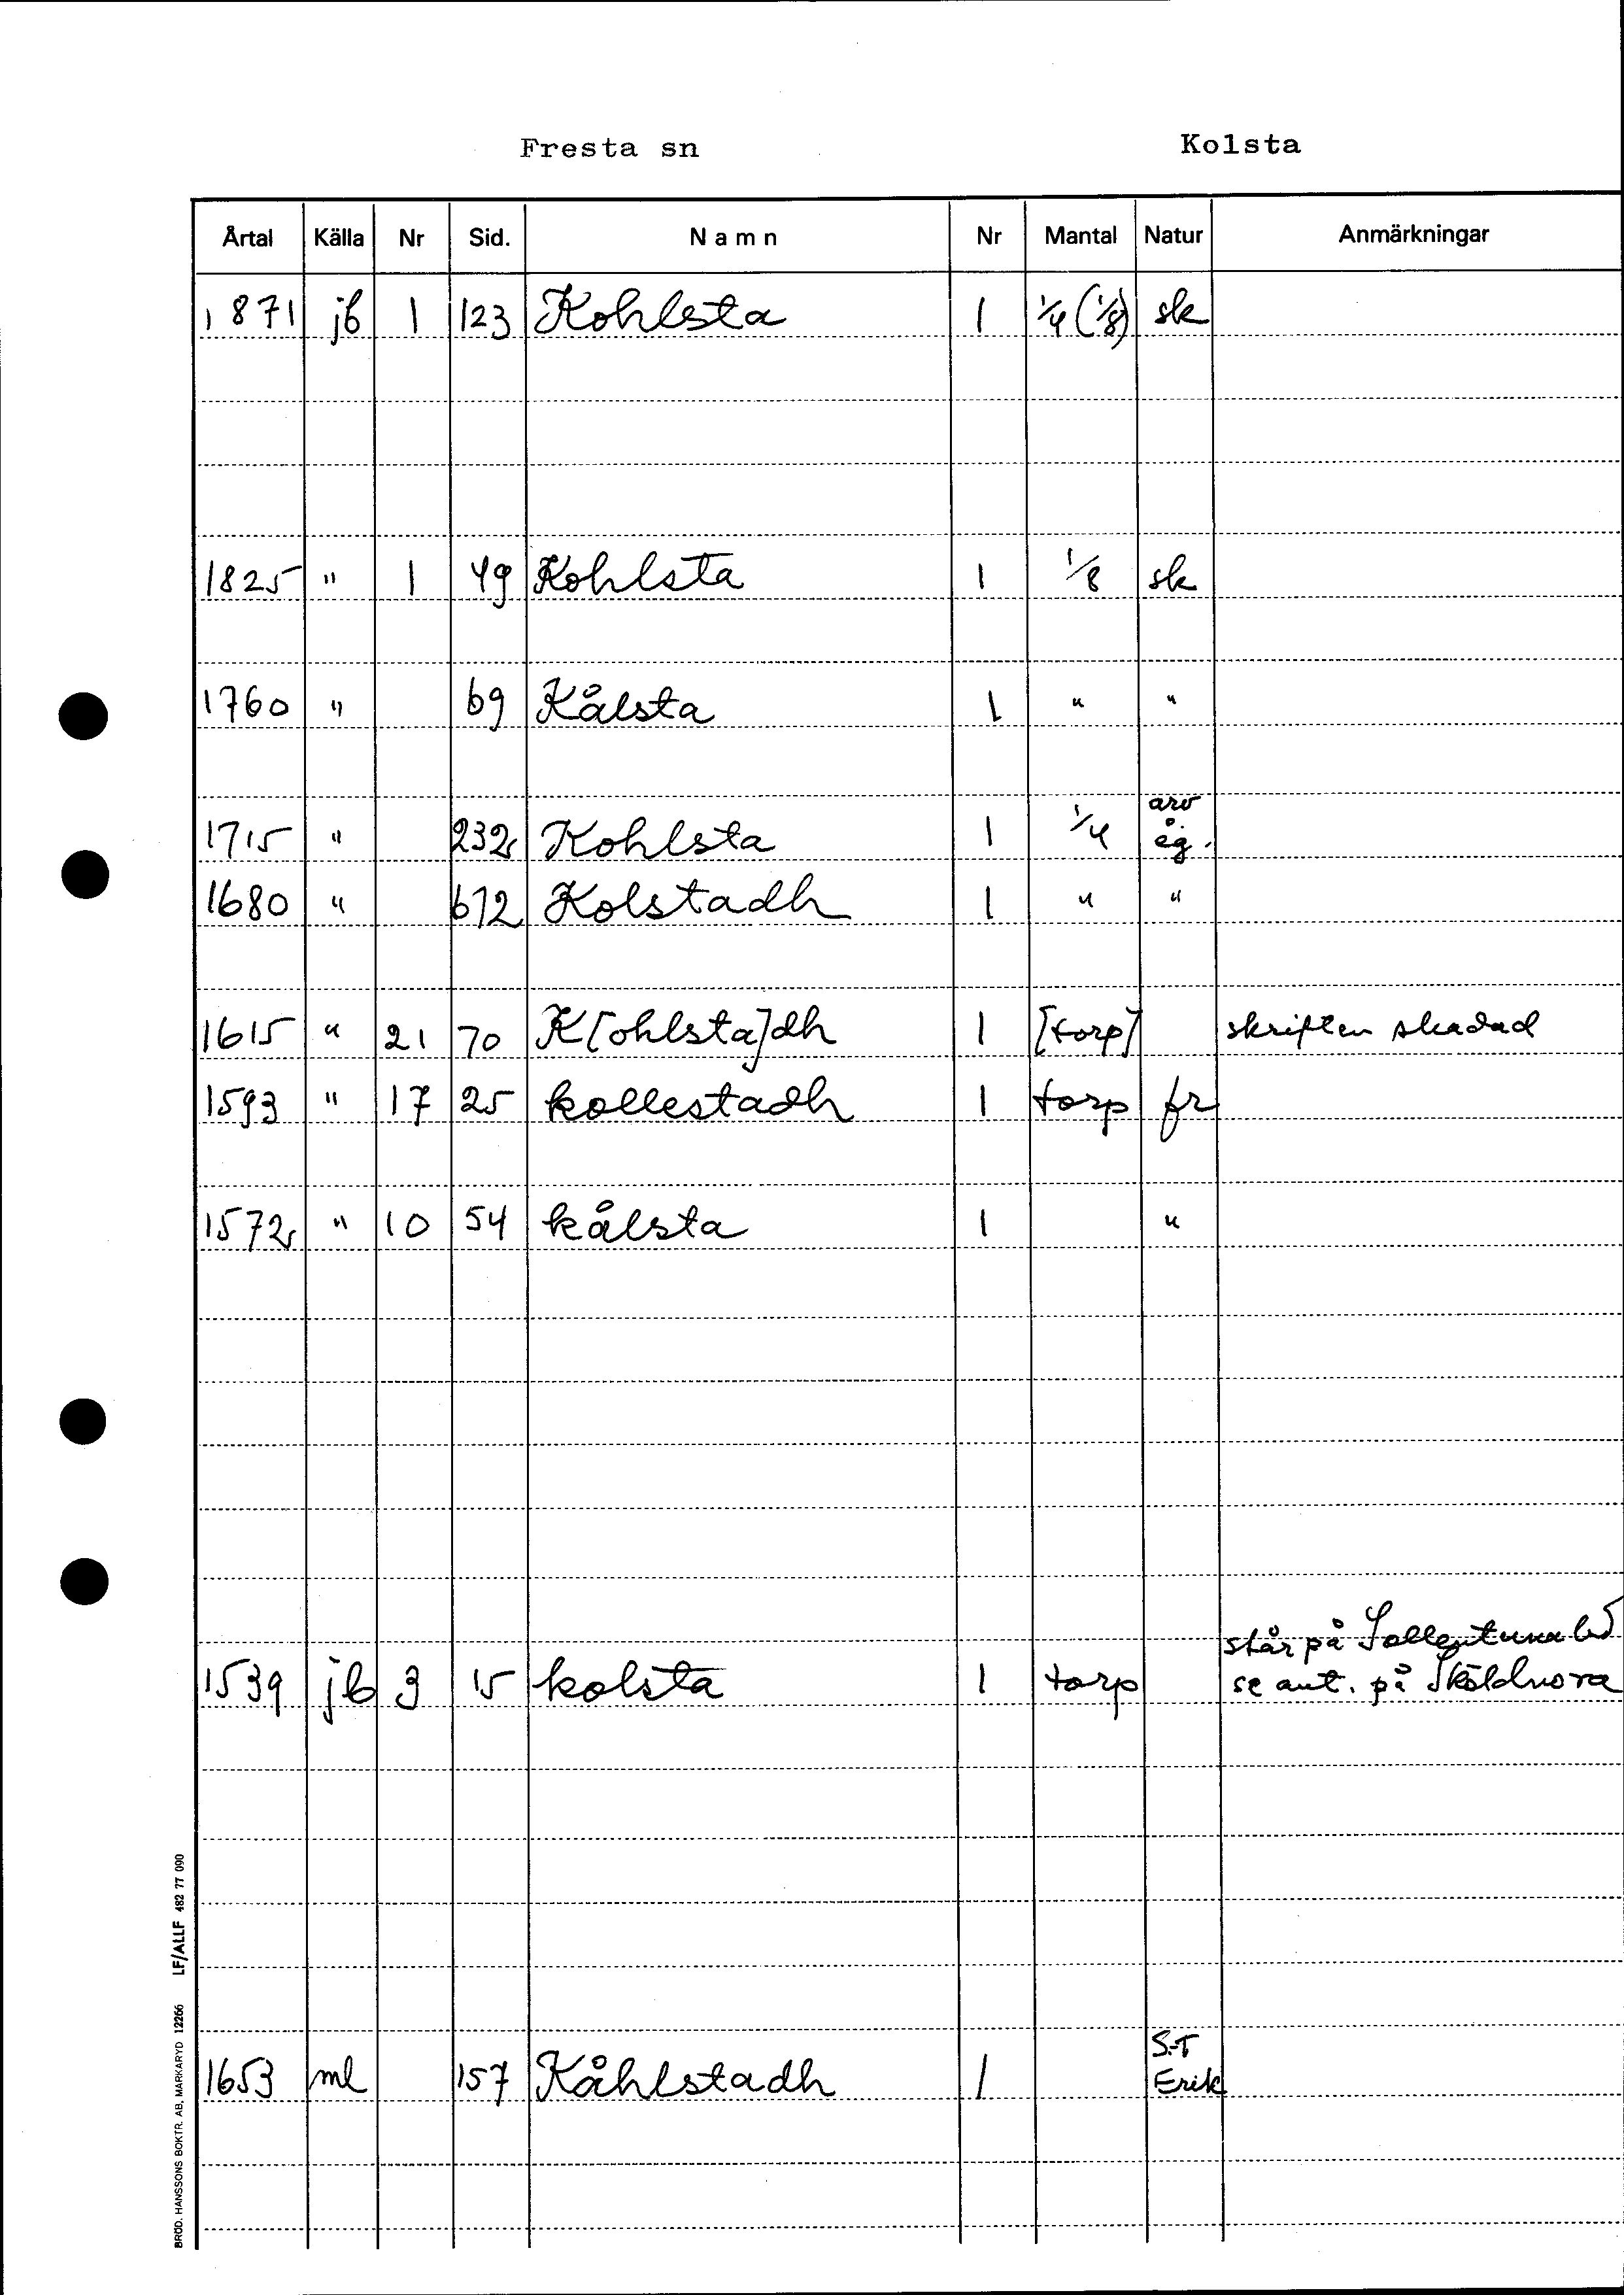 Fresta sn Kolsta
Årtal Källa Nr Sid. Namn Nr Mantal Natur Anmärkningar
1871 jb 1 123 Kohlsta 1 1/4 (1/8) sk
1825 " 1 49 Kohlsta 1 1/8 sk
1760 " 69 Kålsta 1 " "
arv
1715 " 232 Kohlsta 1 1/4 o. eg.
1680 " 672 Kolstadh 1 " "
1615 " 21 70 K[ohlsta]dh 1 [torp] skriften skadad
1593 " 17 25 kollestadh 1 torp fr
1572 " 10 54 kålsta 1 "
står på Sollentuna hd
1539 jb 3 15 kolsta 1 torp se ant. på Sköldnora
S-T
1653 ml 157 Kåhlstadh 1 Erik
BRÖD. HANSSONS BOKTR. AB, MARKARYD 12266 LF/ALLF 482 77 090